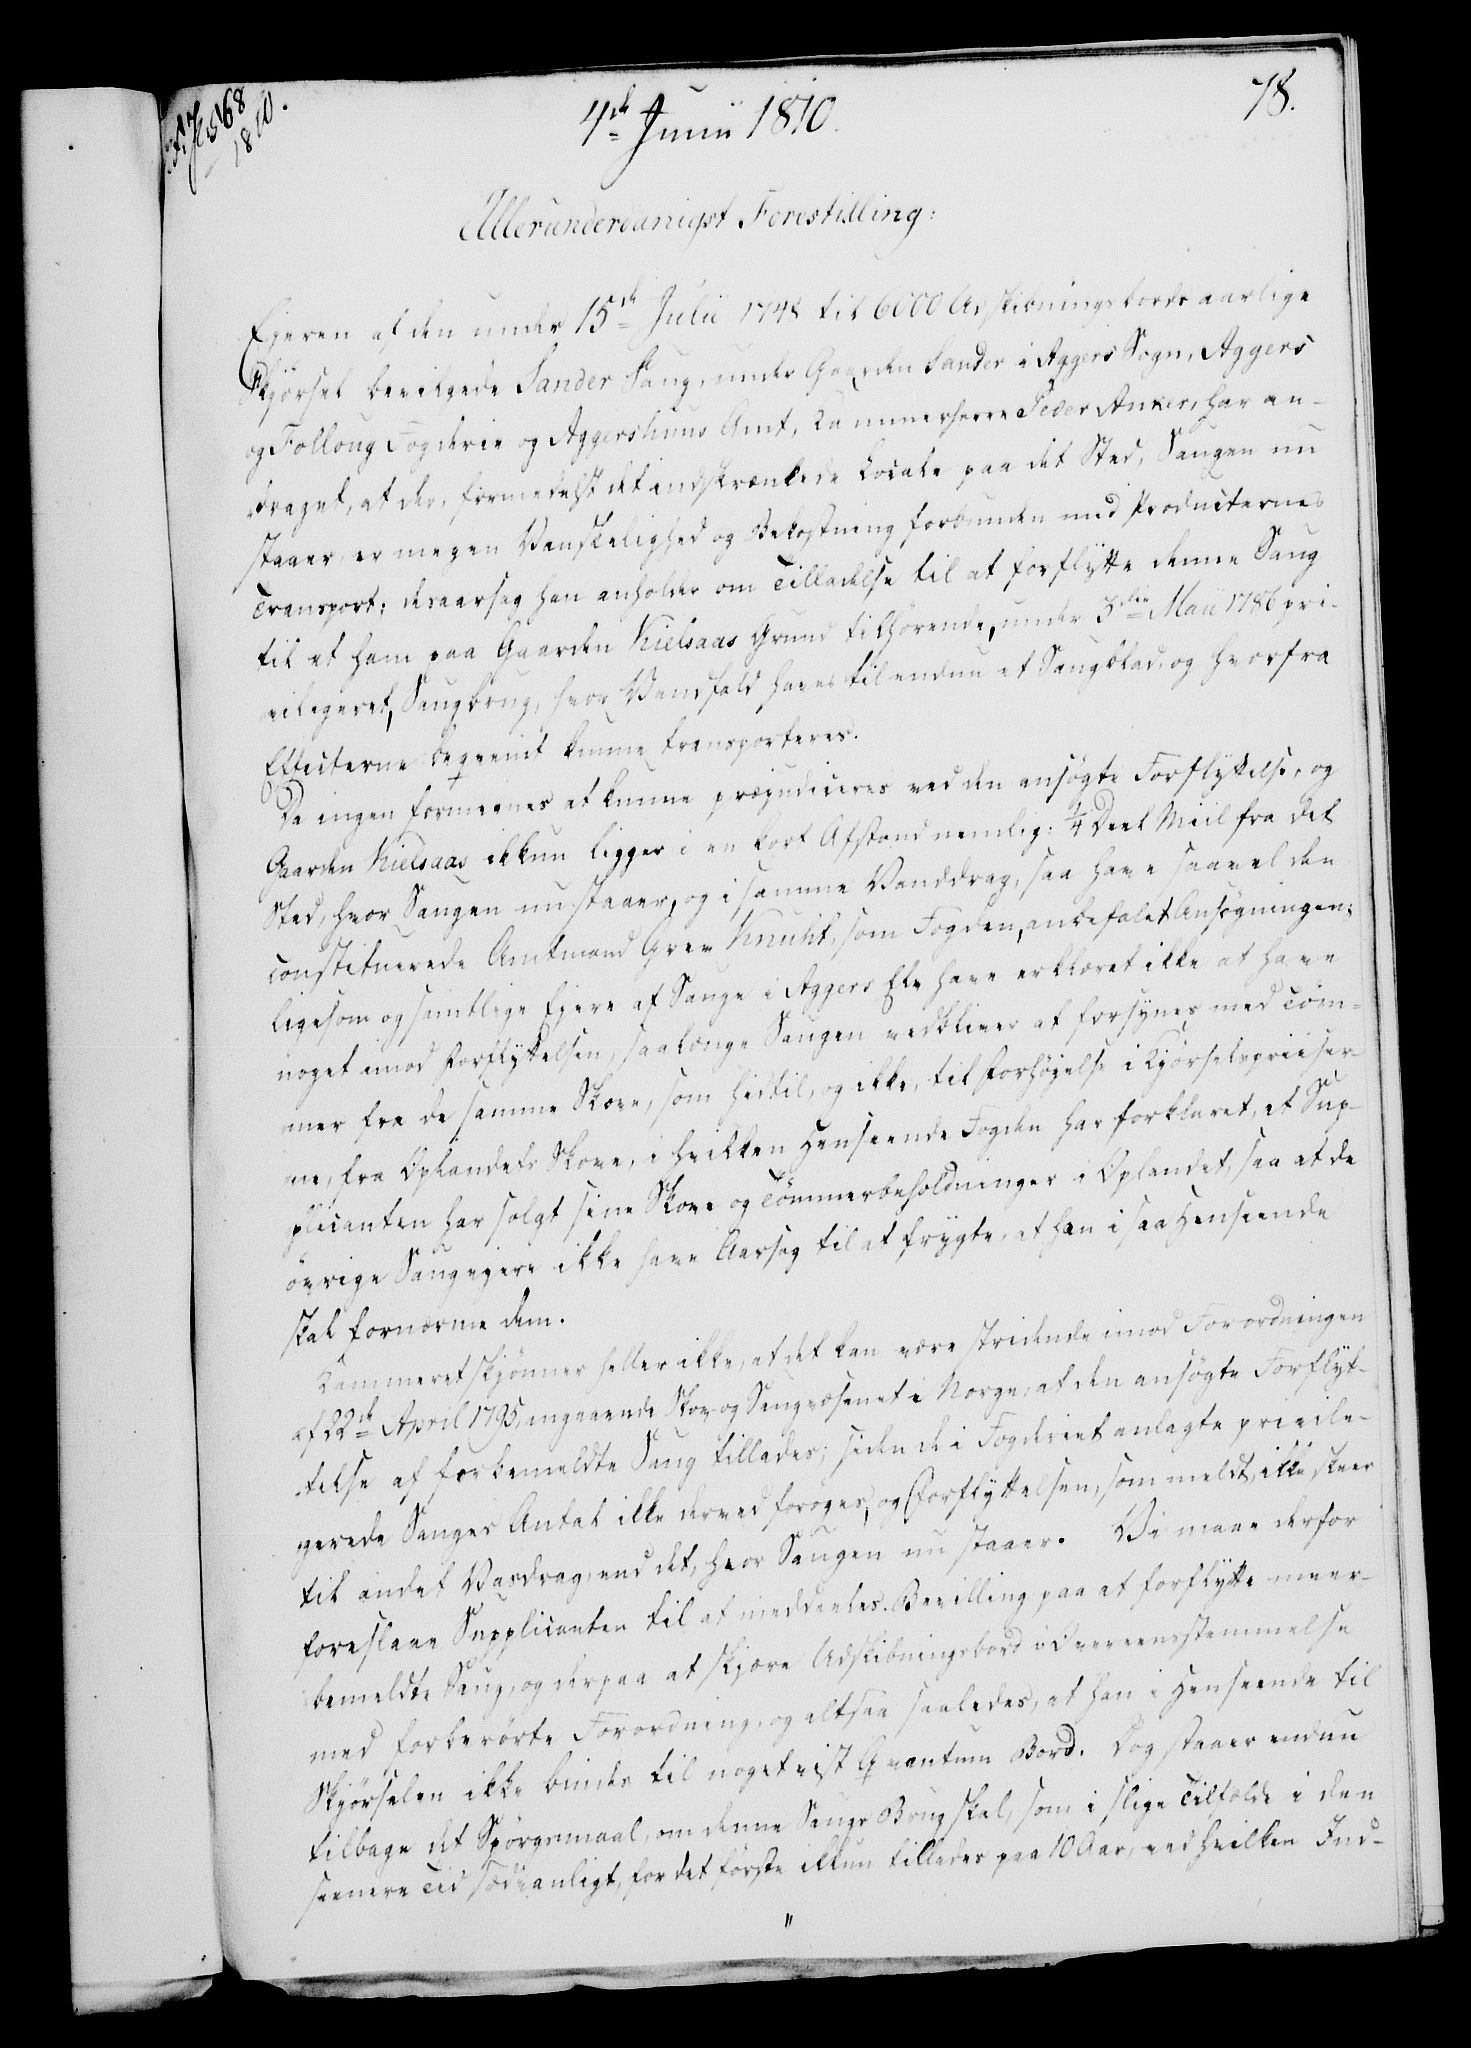 568
1810.
4de Junii 1810.
78.
Allerunderdanigst Forestilling:
Ejeren af den under 15de Julii 1748 til 6000 Adskibningsbords aarlige
Skjørsel bevilgede Sander Saug, under Gaarden Sander i Aggers Sogn, Aggers
og Folloug Fogderie og Aggershuus Amt, Kammerherre Peder Anker, har an-
draget, at der, formedelst det indskrænkede Locale paa det Sted, Saugen nu
staaer, er megen Vanskelighed og Bekostning forbunden med Producternes
Transport; desaarsag han anholder om Tilladelse til at forflytte denne Saug
til et ham paa Gaarden Kielsaas Grund tilhørende, under 3die Maii 1786 pri-
vilegeret, Saugbrug, hvor Vandfald haves til endnu et Saugblad, og hvorfra
Effecterne beqvemt kunne transporteres.
Da ingen formeenes at kunne præjudiceres ved den ansøgte Forflyttelse, og
Gaarden Kielsaas ikkun ligger i en kort Afstand nemlig: 1/4 Deel Miil fra det
Sted, hvor Saugen nu staaer, og i samme Vanddrag, saa have saavel den
constituerede Amtmand Grev Knuht, som Fogden, anbefalet Ansøgningen;
ligesom og samtlige Ejere af Sauge i Aggers Elv have erklæret ikke at have
noget imod Forflyttelsen, saalænge Saugen vedbliver at forsynes med Tøm-
mer fra de samme Skove, som hidtil, og ikke, til Forhøyelse i Kjørselspriiser-
ne, fra Oplandets Skove, i hvilken Henseende Fogden har forklaret, at Sup-
plicanten har solgt sine Skove og Tømmerbeholdninger i Oplandet, saa at de
øvrige Saugejere ikke have Aarsag til at frygte, at han i saa Henseende
skal fornærme dem.
Kammeret skjønner heller ikke, at det kan være stridende imod Forordningen
af 22de April 1795, angaaende Skov- og Saugvæsenet i Norge, at den ansøgte Forflyt-
telse af forbemeldte Saug tillades; siden de i Fogderiet anlagte privile-
gerede Sauges Antal ikke derved forøges, og Forflyttelsen, som meldt, ikke skeer
til andet Vasdrag, end det, hvor Saugen nu staaer. Vi maae derfor
foreslaae Supplicanten til at meddeeles Bevilling paa at forflytte meer-
bemeldte Saug, og derpaa at skjære Adskibningsbord i Overeensstemmelse
med forberørte Forordning, og altsaa saaledes, at han i Henseende til
Skjørselen ikke bindes til noget vist Qvantum Bord. Dog staaer endnu
tilbage det Spørgsmaal, om denne Saugs Brug skal, som i slige Tilfælde i den
seenere Tid sædvanligt, for det første ikkun tillades paa 10 Aar, ved hvilken Ind-
"